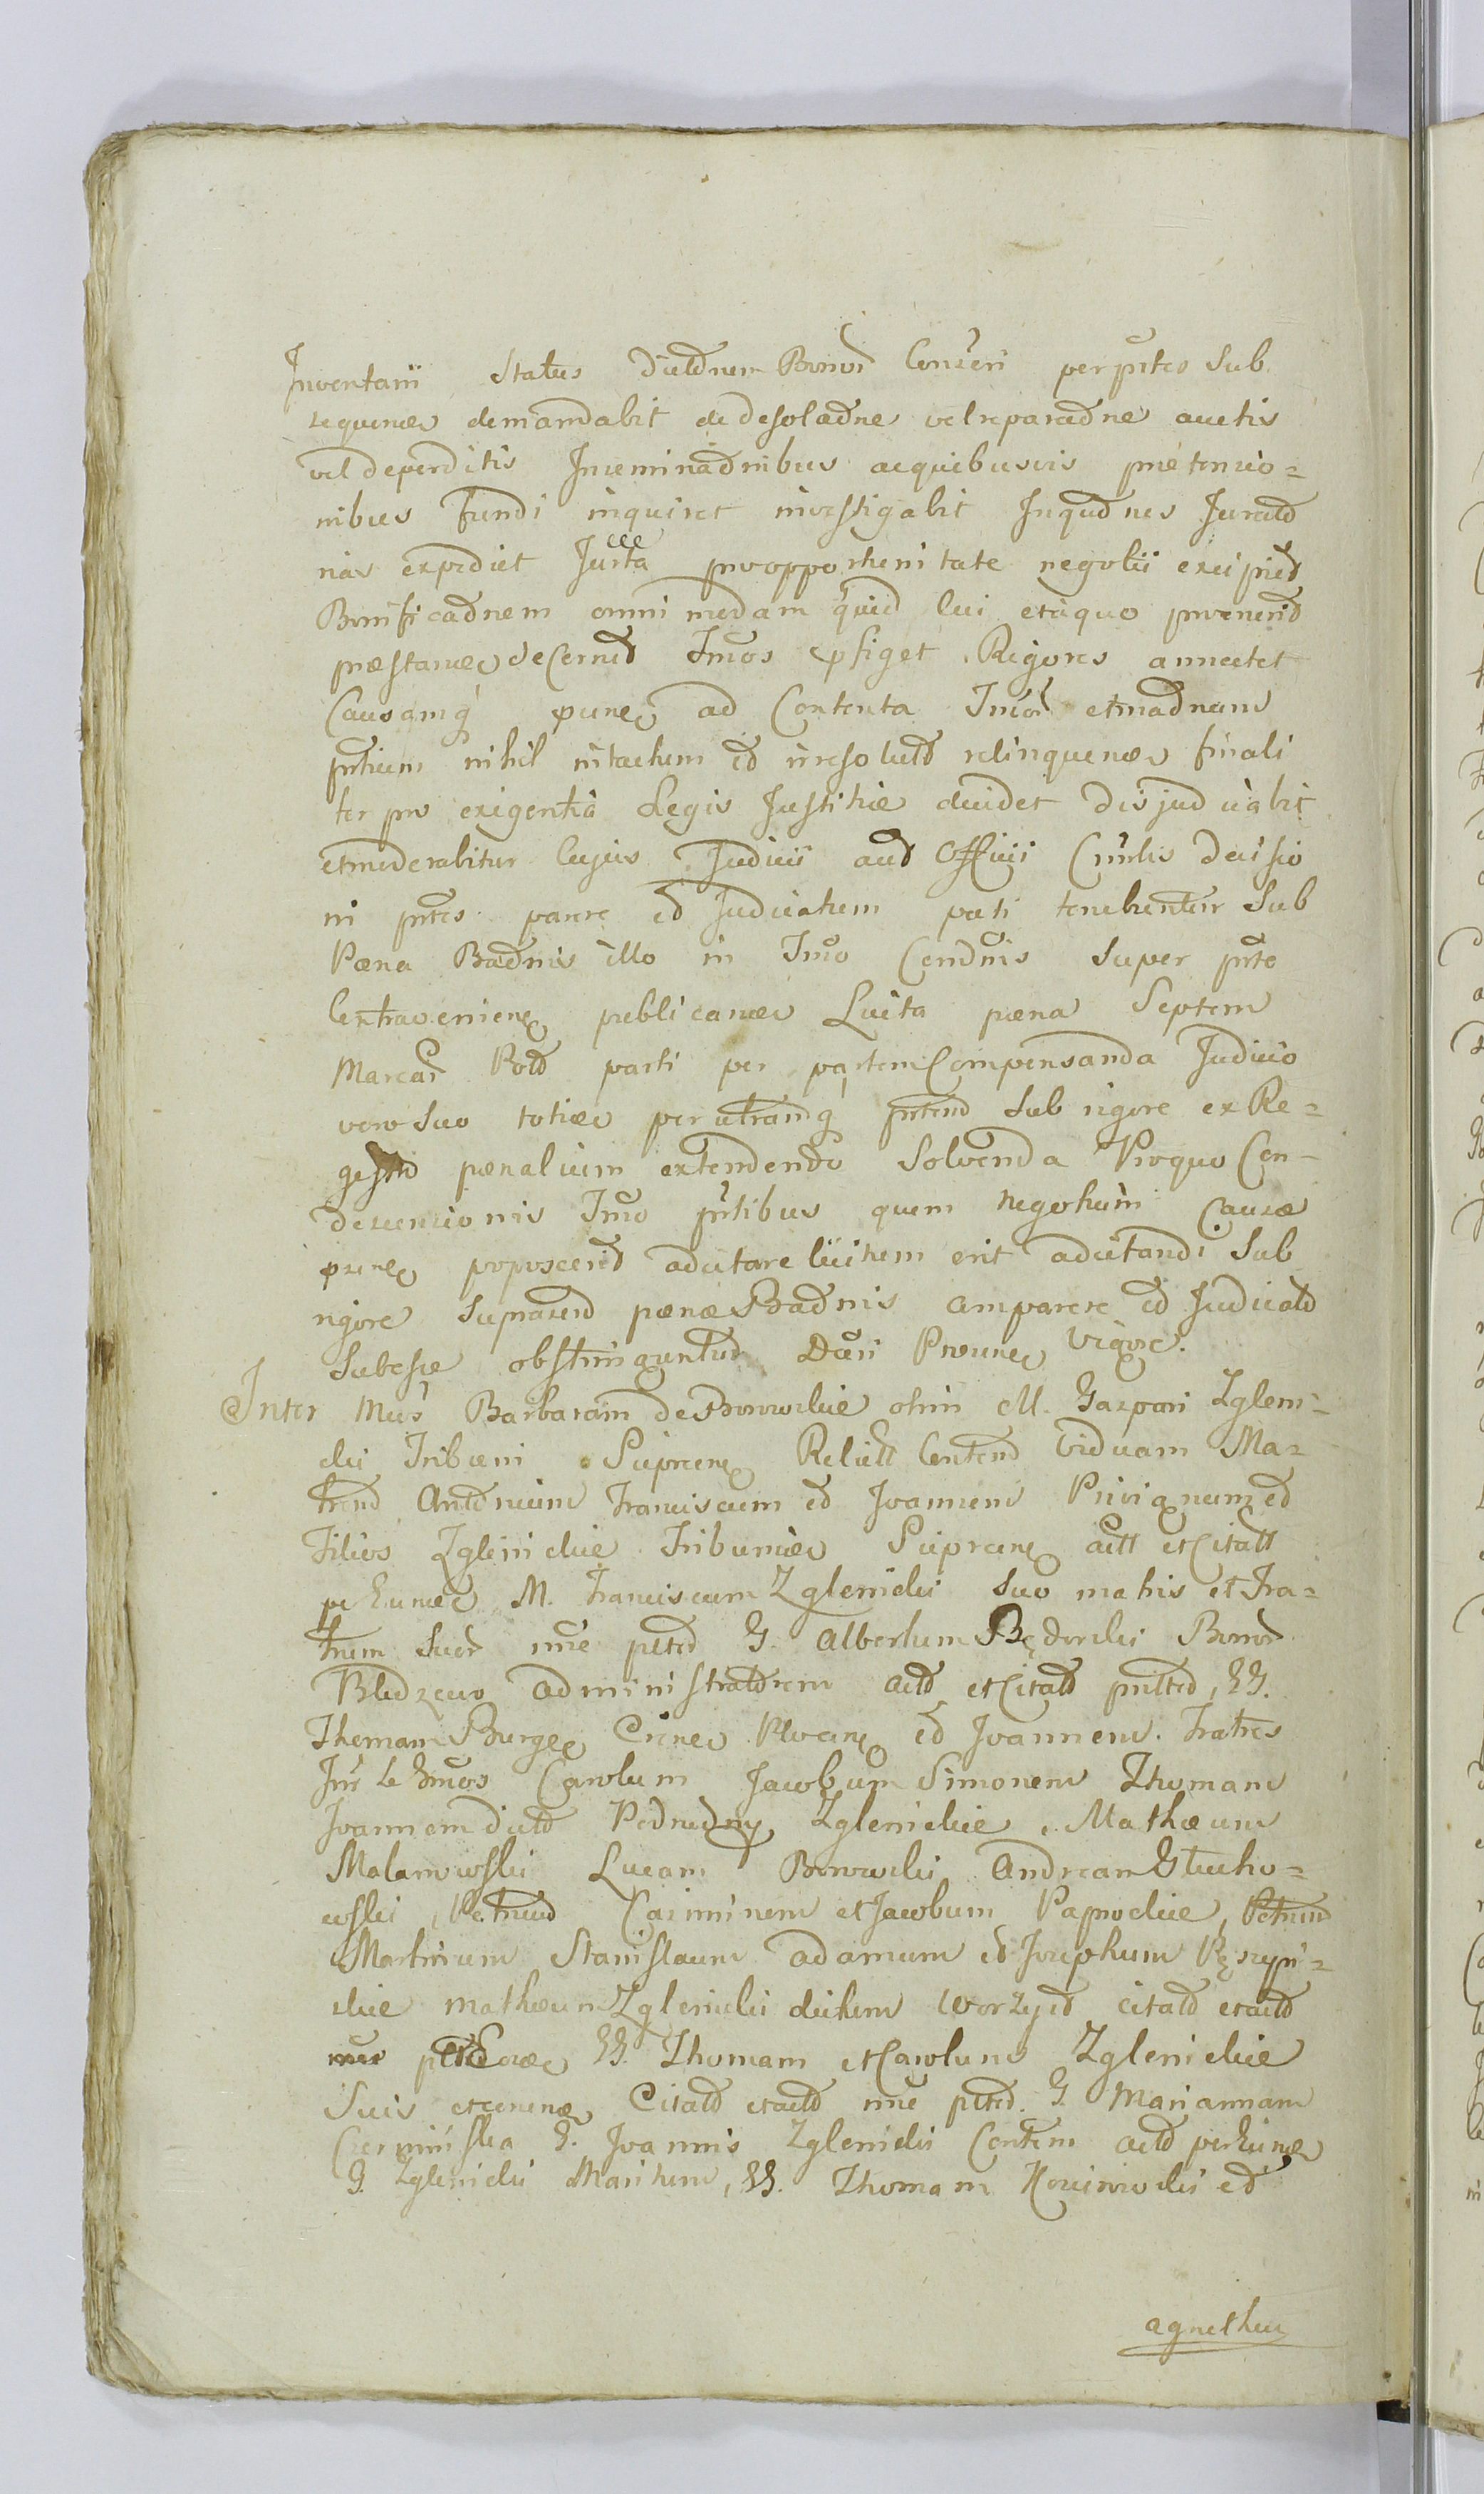 Inventarii Status dictdnem Bonor Conseri per pntes Sub
sequenæ demandabit de desoladne vel reparadne auctis
vel deperditis Inseminadnibus acquibusvis prætensio=
nibus fundi inquiret investigabit Inqudnes Juratd
nas expediet Juxta pro opportunitate negotii excipied
Bonificadnem omnimodam quid cui et a quo provenerid
præstanæ decernet Tmos cpfiget Rigores annectet
Causamq pnne ad Contenta Tmor etmadnam
pntium nihil intactum ed irresolutd relinquenæ finali
ter pro exigentia Legis Justitiæ decidet disjudicabit
etmoderabitur Cujus Judicii aud Officii Cmlis decisio
ni pntes parere ed Judicatum pati tenebuntur Sub
Pæna Badnis illo in Tmo Condnis super pnte
Contravenienæ publicanæ Luita pæna Septem
Marcar Pold parti per partem Compensanda Judicio
vero Suo totiæ per utramq prtend Sub rigore ex Re=
gestro pænalium extendendo Solvenda Pro quo Con-
descensionis Tmo pntibus quem negotium Causæ
pnne poposcerid adcitare licitum erit adcitandi Sub
rigore suprascrd pænæ Badnis comparere ed Judicatd
Subesse obstringuntur Dcti Præsne Vigore.
Inter Mm Barbaram de Borowskie olim M. Gaspari Zgleni=
cki Tribuni Siepræne Relictt Contend Viduam Ma=
trend Antdnium Franciscum ed Joannem Privignum ed
Filios Zglenickie Tribuniæ Siepræne actt et Citatt
pe Eunæ M. Franciscum Zglenicki Suo matris et Fra=
trum Suor nne pltrd G. Albertum Będorski Bonor
Bledzewo administratdrem actd et Citatd pnltrd, GG.
Thomam Burge Cræne Plocene ed Joannem. Fratres
Inr se Gmnos Carolum Jacobum Simonem Thomam
Joannem dictd Zglenickie, Mathæum
Malanowski Lucam Borowski Andream Głucho=
wski, Petrum Casimirum et Jacobum Paprockie, Petrum
Martinum Stanislaum adamum ed Josephum Ręszyń=
skie mathæum Zglenicki dictum Worzyd citatd etactd
GG. Thomam et Carolum Zglenickie
Suis etcerenæ Citatd etactd nne pltrd. G. Mariannam
Czerminska G. Joannis Zglenicki Contem actd per Eunæ
G. Zglenicki Maritum, GG. Thomam Kosinowski ed
agnethen